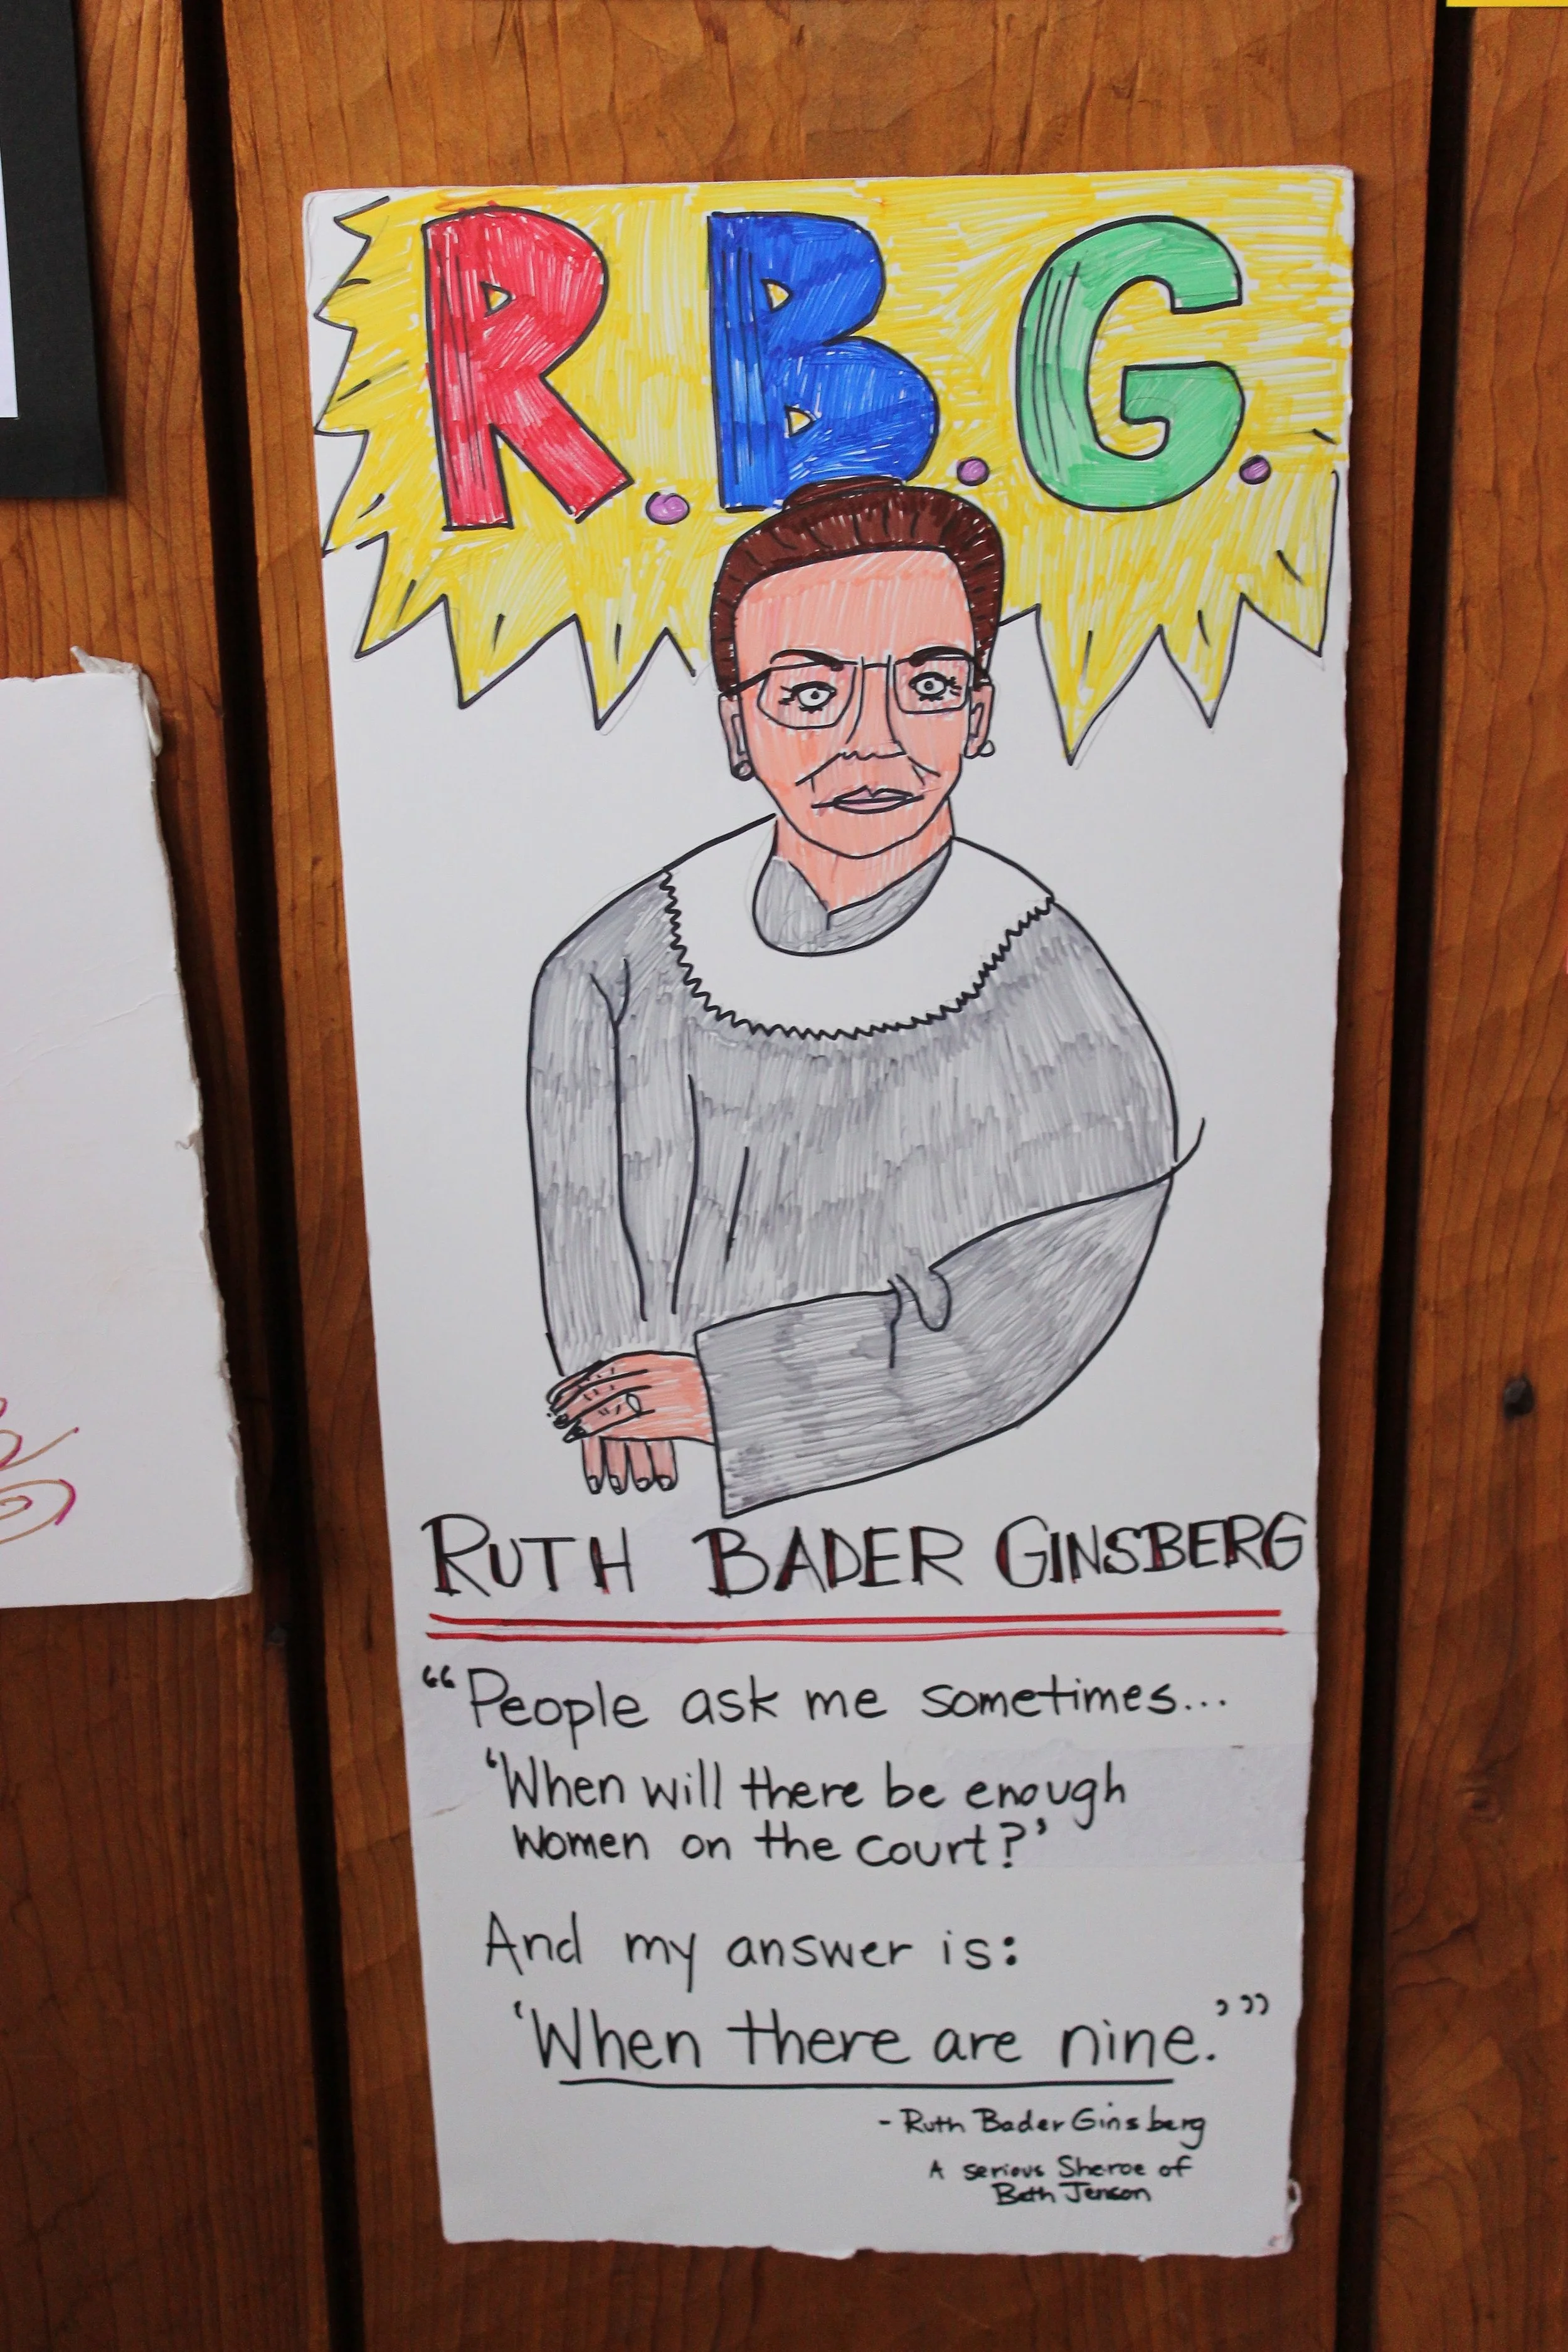 R.B.G.
RUTH BADER GINSBERG
“People ask me sometimes...
‘When will there be enough
women on the court?’
And my answer is:
‘When there are nine.’”
- Ruth Bader Ginsberg
A serious Sheroe of
Beth Jenson